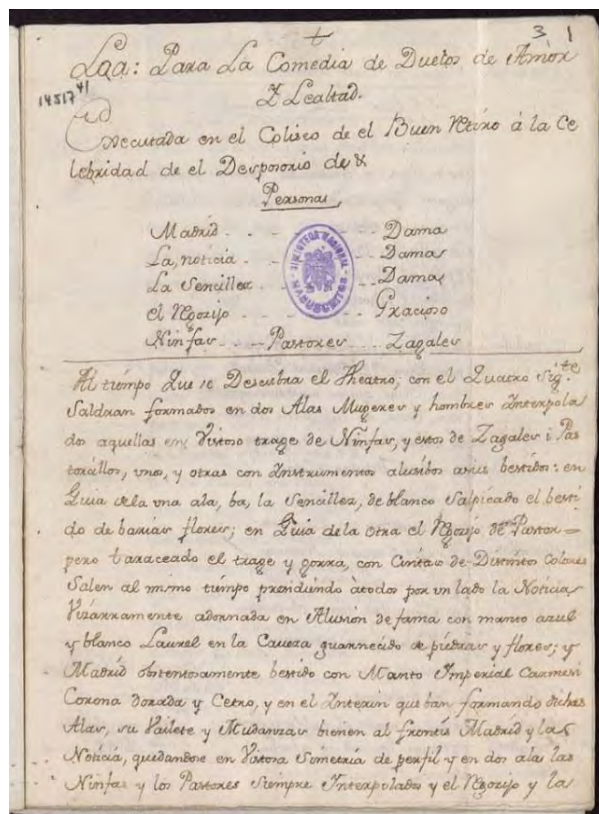 3 1
Loa: Para La Comedia de Duelos de Amor
Y Lealtad.
14517 41
Executada en el Coliseo de el Buen Retiro á la Ce
lebridad de el Desposorio de &
Personas
Madrid - - - Dama
La noticia - - - Dama
La Sencillez - - - Dama
el Regozijo - - - Gracioso
Ninfas - - - Pastores - - - Zagales
BIBLIOTECA NACIONAL
MANUSCRITOS
Al tiempo Que se Descubra el Theatro, con el Quatro Sigte
Saldran formados en dos Alas Mugeres y hombres Interpola
dos aquellas en Vistoso trage de Ninfas, y estos de Zagales i Pas
torcillos, unos, y otras con Instrumentos alusibos asus bestidos: en
Guia dela una ala, ba, la Sencillez, de blanco Salpicado el besti
do de barias flores; en Guia dela otra el Regozijo de Pastor =
pero taraceado el trage y gorra, con Cintas de Distintos Colores
Salen al mismo tiempo presidiendo àtodos por un lado la Noticia,
Vizarramente adornada en Alusion de fama con manto azul
y blanco Laurel en la Caveza guarnecido de piedras y flores; y
Madrid obstentosamente bestido con Manto Imperial Carmesi
Corona dorada y Cetro, y en el Interin que ban formando dichas
Alas, su Vailete y Mudanzas bienen al frontis Madrid y la
Noticia, quedandose en Vistosa Simetria de perfil y en dos alas las
Ninfas y los Pastores Siempre Interpolados y el Regozijo y la